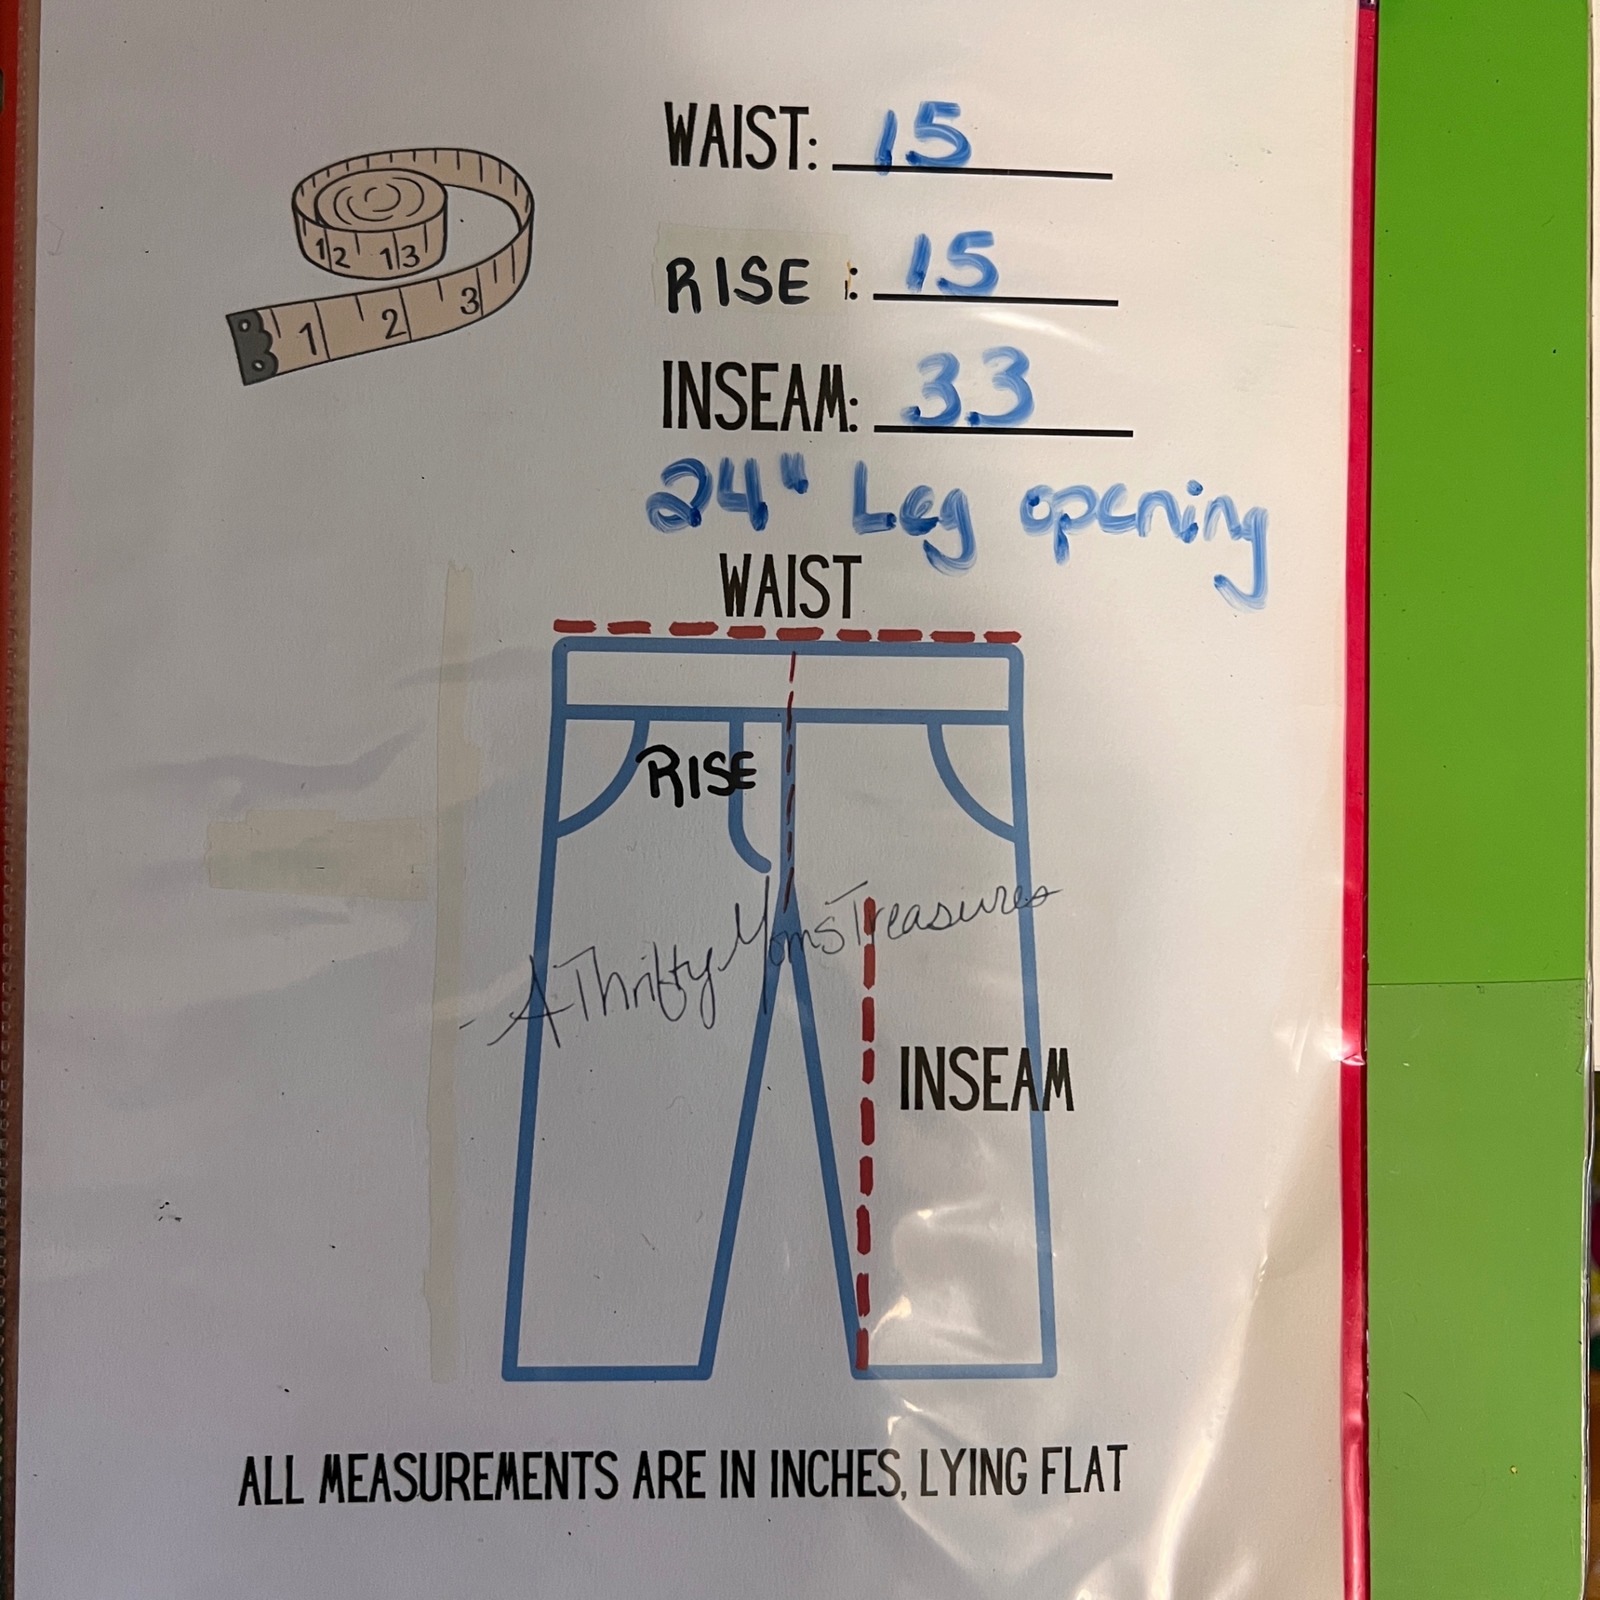 WAIST: 15
12 13
1 2 3
RISE : 15
INSEAM: 33
24" Leg opening
WAIST
RISE
-AThriftyMomsTreasures
INSEAM
ALL MEASUREMENTS ARE IN INCHES, LYING FLAT